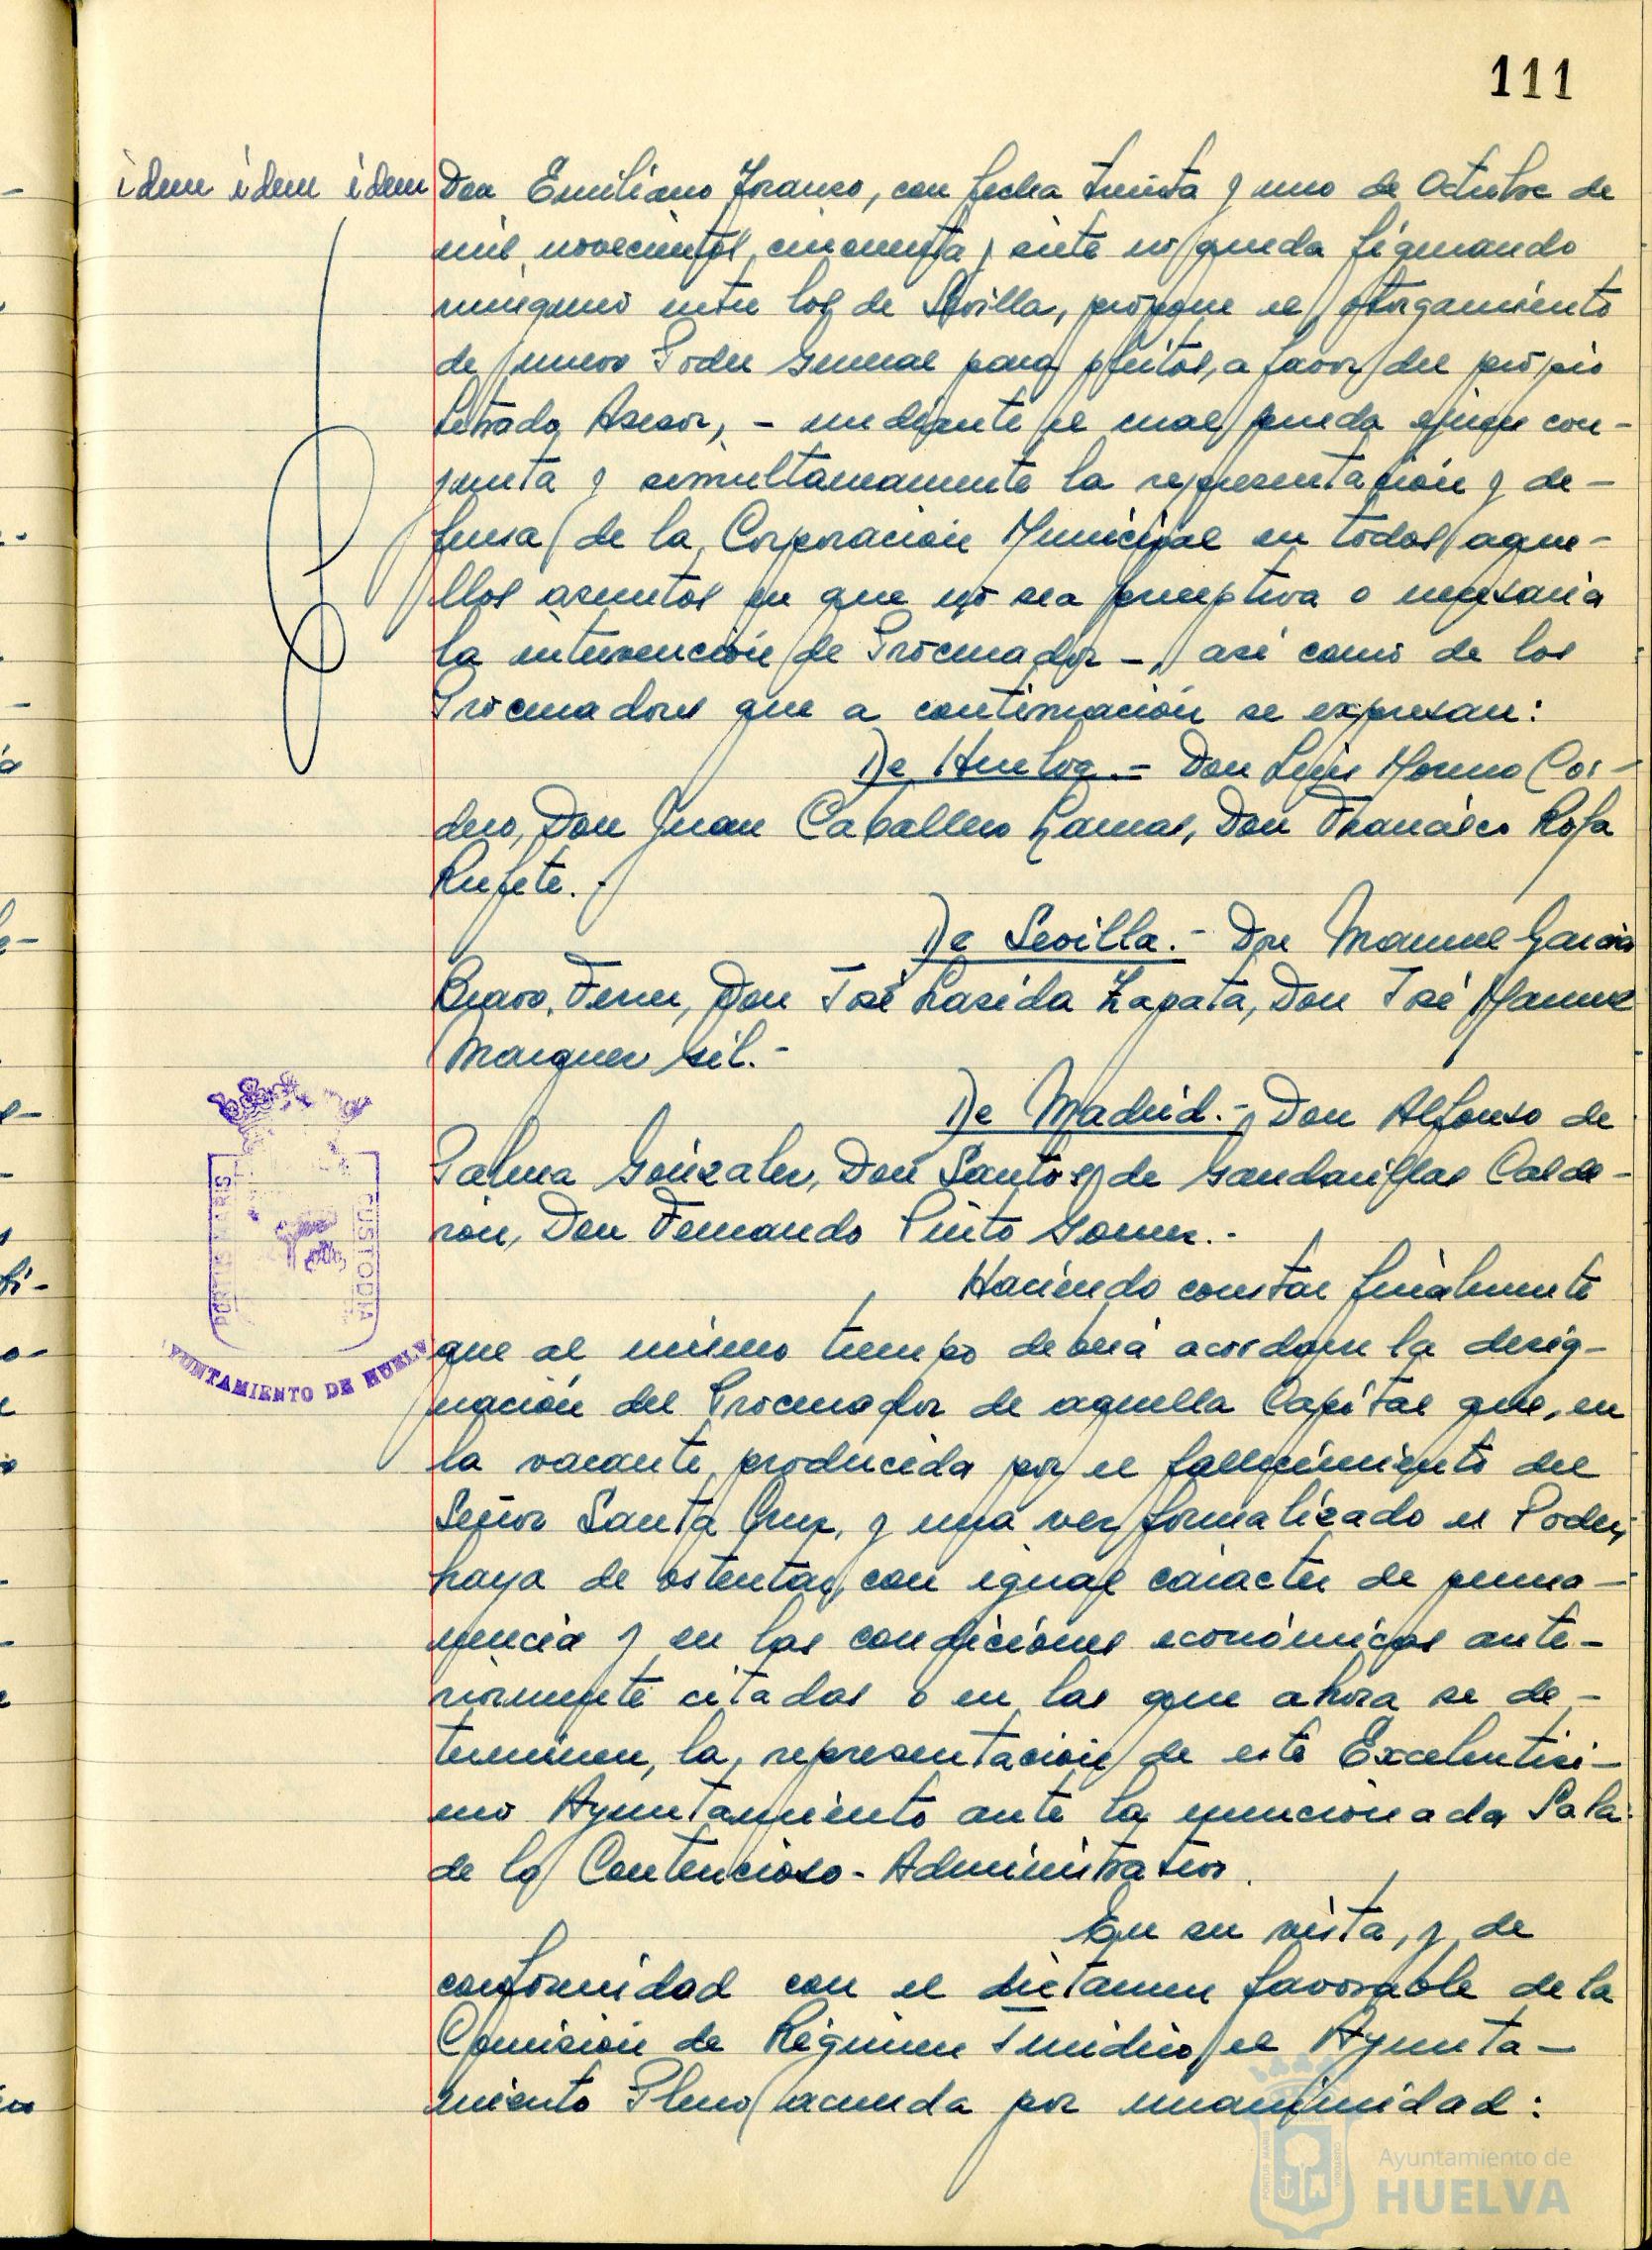 111
idem idem idem
Don Emiliano Franco, con fecha treinta y uno de Octubre de
mil novecientos cincuenta y siete no queda figurando
ninguno entre los de Sevilla, propone el otorgamiento
de nuevo Poder General para pleitos, a favor del propio
Letrado Asesor, - mediante el cual pueda ejercer con-
junta y simultaneamente la representación y de-
fensa de la Corporación Municipal en todos aque-
llos asuntos en que no sea preceptiva o necesaria
la intervención de Procurador -, así como de los
Procuradores que a continuación se expresan:
De Huelva.- Don Luis Moreno Cor-
dero, Don Juan Caballero Lamas, Don Francisco Rofa
Rufete.-
De Sevilla.- Don Manuel García
Bravo Ferrer, Don José Lasida Zapata, Don José Manuel
Marquez Gil.-
De Madrid.- Don Alfonso de
Palma González, Don Santos de Gandarillas Calde-
rón, Don Fernando Pinto Gomez.-
Haciendo constar finalmente
que al mismo tiempo deberá acordarse la desig-
nación del Procurador de aquella Capital que, en
la vacante producida por el fallecimiento del
Señor Santa Cruz, y una vez formalizado el Poder,
haya de ostentar, con igual carácter de perma-
nencia y en las condiciones económicas ante-
riormente citadas o en las que ahora se de-
terminen, la representación de este Excelentísi-
mo Ayuntamiento ante la mencionada Sala
de lo Contencioso-Administrativo.
En su vista, y de
conformidad con el dictamen favorable de la
Comisión de Régimen Jurídico, el Ayunta-
miento Pleno acuerda por unanimidad:
PORTUS MARIS
CUSTODIA
AYUNTAMIENTO DE HUELVA
Ayuntamiento de
HUELVA